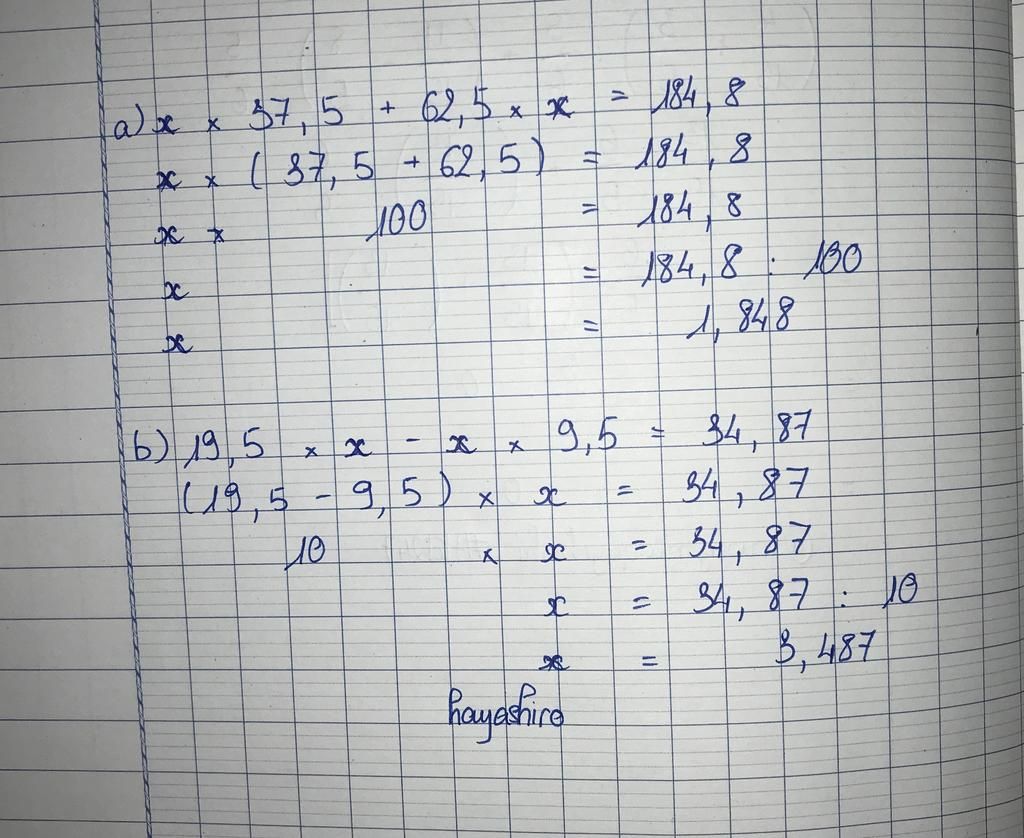 a) x × 37,5 + 62,5 × x = 184,8
x × (37,5 + 62,5) = 184,8
x × 100 = 184,8
x = 184,8 : 100
x = 1,848
b) 19,5 × x - x × 9,5 = 34,87
(19,5 - 9,5) × x = 34,87
10 × x = 34,87
x = 34,87 : 10
x = 3,487
hayashiro